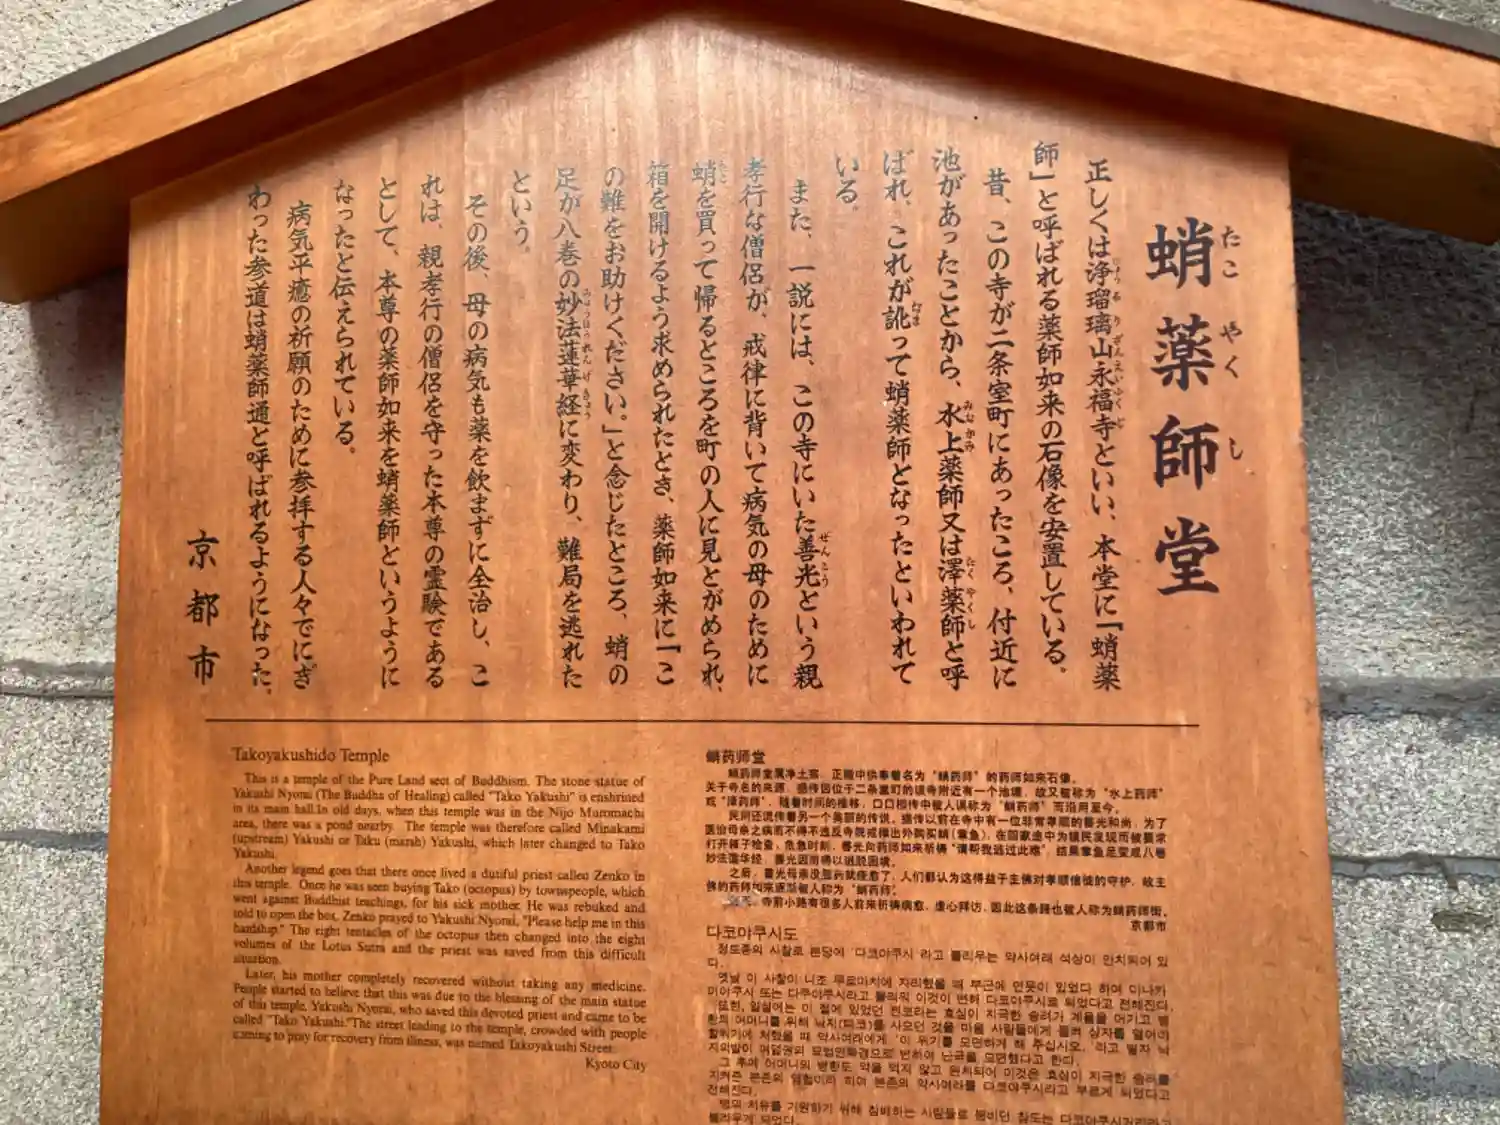 蛸薬師堂
たこやくし
正しくは浄瑠璃山永福寺といい、本堂に「蛸薬
師」と呼ばれる薬師如来の石像を安置している。
昔、この寺が二条室町にあったころ、付近に
池があったことから、水上薬師又は澤薬師と呼
ばれ、これが訛って蛸薬師となったといわれて
いる。
また、一説には、この寺にいた善光という親
孝行な僧侶が、戒律に背いて病気の母のために
蛸を買って帰るところを町の人に見とがめられ、
箱を開けるよう求められたとき、薬師如来に「こ
の難をお助けください。」と念じたところ、蛸の
足が八巻の妙法蓮華経に変わり、難局を逃れた
という。
その後、母の病気も薬を飲まずに全治し、こ
れは、親孝行の僧侶を守った本尊の霊験である
として、本尊の薬師如来を蛸薬師というように
なったと伝えられている。
病気平癒の祈願のために参拝する人々でにぎ
わった参道は蛸薬師通と呼ばれるようになった。
京都市
Takoyakushido Temple
This is a temple of the Pure Land sect of Buddhism. The stone statue of
Yakushi Nyorai (The Buddha of Healing) called "Tako Yakushi" is enshrined
in its main hall.In old days, when this temple was in the Nijo Muromachi
area, there was a pond nearby. The temple was therefore called Minakami
(upstream) Yakushi or Taku (marsh) Yakushi, which later changed to Tako
Yakushi.
Another legend goes that there once lived a dutiful priest called Zenko in
this temple. Once he was seen buying Tako (octopus) by townspeople, which
went against Buddhist teachings, for his sick mother. He was rebuked and
told to open the box. Zenko prayed to Yakushi Nyorai, "Please help me in this
hardship." The eight tentacles of the octopus then changed into the eight
volumes of the Lotus Sutra and the priest was saved from this difficult
situation.
Later, his mother completely recovered without taking any medicine.
People started to believe that this was due to the blessing of the main statue
of this temple. Yakushi Nyorai, who saved this devoted priest and came to be
called "Tako Yakushi."The street leading to the temple, crowded with people
coming to pray for recovery from illness, was named Takoyakushi Street.
Kyoto City
蛸药师堂
蛸药师堂属净土宗，正殿中供奉着名为"蛸药师"的药师如来石像。
关于寺名的来源，据传因位于二条室町的该寺附近有一个池塘，故又被称为"水上药师"
或"泽药师"，随着时间的推移，口口相传中被人误称为"蛸药师"而沿用至今。
民间还流传着另一个美丽的传说。据传以前在寺中有一位非常孝顺的善光和尚，为了
医治母亲之病而不得不违反寺院戒律出外购买蛸（章鱼），在回家途中为镇民发现而被要求
打开箱子检查，危急时刻，善光向药师如来祈祷"请帮我逃过此难"，结果章鱼足变成八卷
妙法莲华经，善光因而得以逃脱困境。
之后，善光母亲没服药就痊愈了，人们都认为这得益于主佛对孝顺信徒的守护，故主
佛的药师如来逐渐被人称为"蛸药师"。
寺前小路有很多人前来祈祷病愈，虔心拜访，因此这条路也被人称为蛸药师街。
京都市
다코야쿠시도
정토종의 사찰로 본당에 '다코야쿠시'라고 불리우는 약사여래 석상이 안치되어 있
다.
옛날 이 사찰이 니조 무로마치에 자리했을 때 부근에 연못이 있었다 하여 미나카
미야쿠시 또는 다쿠야쿠시라고 불리워 이것이 변해 다코야쿠시로 되었다고 전해진다.
또한, 일설에는 이 절에 있었던 젠코라는 효심이 지극한 승려가 계율을 어기고 병
한의 어머니를 위해 낙지(다코)를 사오던 것을 마을 사람들에게 들켜 상자를 열어야
할위기에 처했을 때 약사여래에게 '이 위기를 모면하게 해 주십시오.'라고 빌자 낙
지의발이 여덟권의 묘법연화경으로 변하여 난국을 모면했다고 한다.
그 후에 어머니의 병환도 약을 먹지 않고 완치되어 이것은 효심이 지극한 승려를
지켜준 본존의 영험이라 하여 본존의 약사여래를 다코야쿠시라고 부르게 되었다고
전해진다.
병의 치유를 기원하기 위해 참배하는 사람들로 붐비던 참도는 다코야쿠시거리라고
불리우게 되었다.